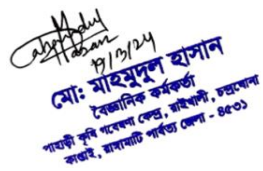 19/3/24
মো: মাহমুদুল হাসান
বৈজ্ঞানিক কর্মকর্তা
পাহাড়ী কৃষি গবেষণা কেন্দ্র, রাইখালী, চন্দ্রঘোনা
কাপ্তাই, রাঙ্গামাটি পার্বত্য জেলা - ৪৫৩১